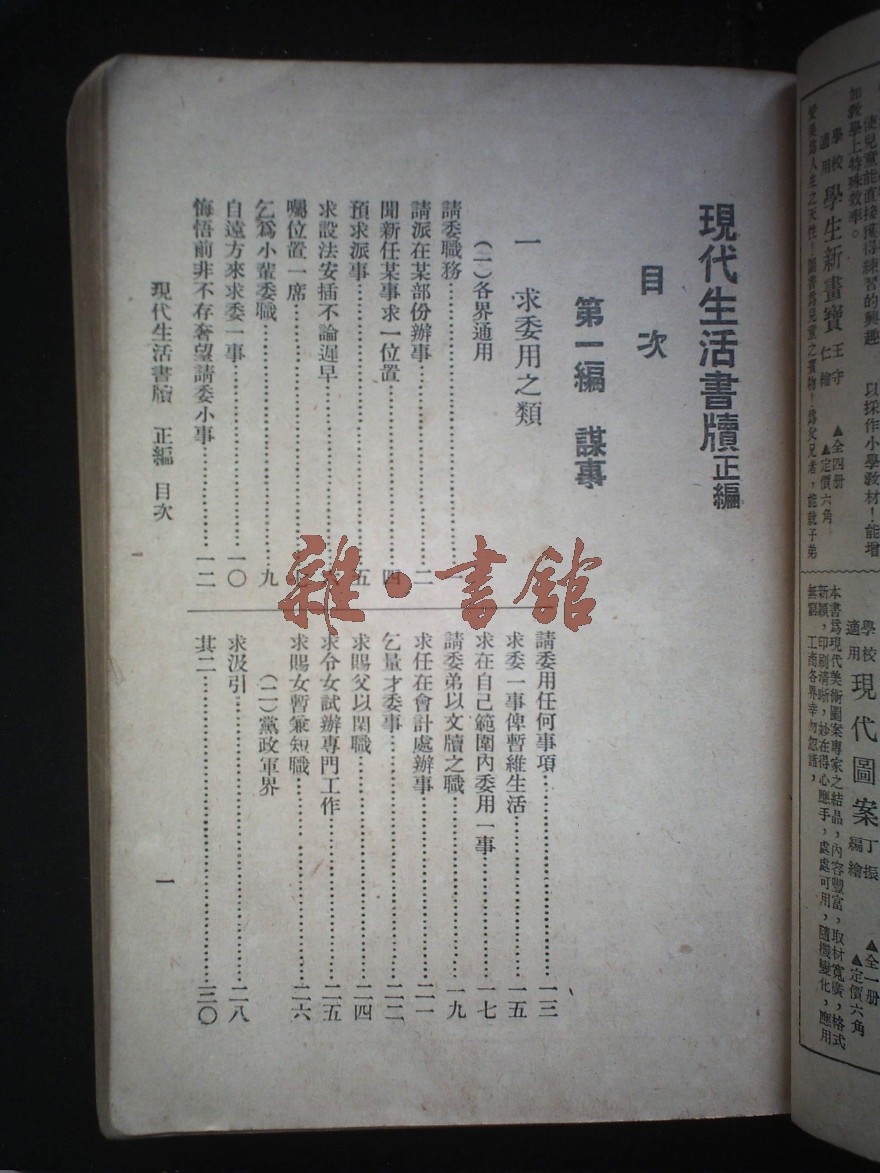 使兒童能直接獲得練習的興趣 以採作小學教材！能增
加教學上特殊效率。
學校適用 學生新畫寶 王守仁繪 ▲全四册 ▲定價六角
愛美爲人生之天性！圖畫爲兒童之寶物！爲父兄者，能就子弟
學校適用 現代圖案 丁振編繪 ▲全一册 ▲定價六角
本書爲現代美術圖案專家之結晶，內容豐富，取材寬廣，格式
新穎，印刷清晰，妙在得心應手，處處可用，隨機變化，應用
無窮，工商各界幸勿忽諸，
現代生活書牘正編
目次
第一編 謀事
一 求委用之類
（一）各界通用
請委職務……一
請派在某部份辦事……二
聞新任某事求一位置……四
預求派事……五
求設法安插不論遲早……
囑位置一席……
乞爲小輩委職……九
自遠方來求委一事……一〇
悔悟前非不存奢望請委小事……一二
請委用任何事項……一三
求委一事俾暫維生活……一五
求在自己範圍內委用一事……一七
請委弟以文牘之職……一九
求任在會計處辦事……二一
乞量才委事……二三
求賜父以閑職……二四
求令女試辦專門工作……二五
求賜女暫兼短職……二六
（二）黨政軍界
求汲引……二八
其二……三〇
現代生活書牘 正編 目次
一
雜·書館